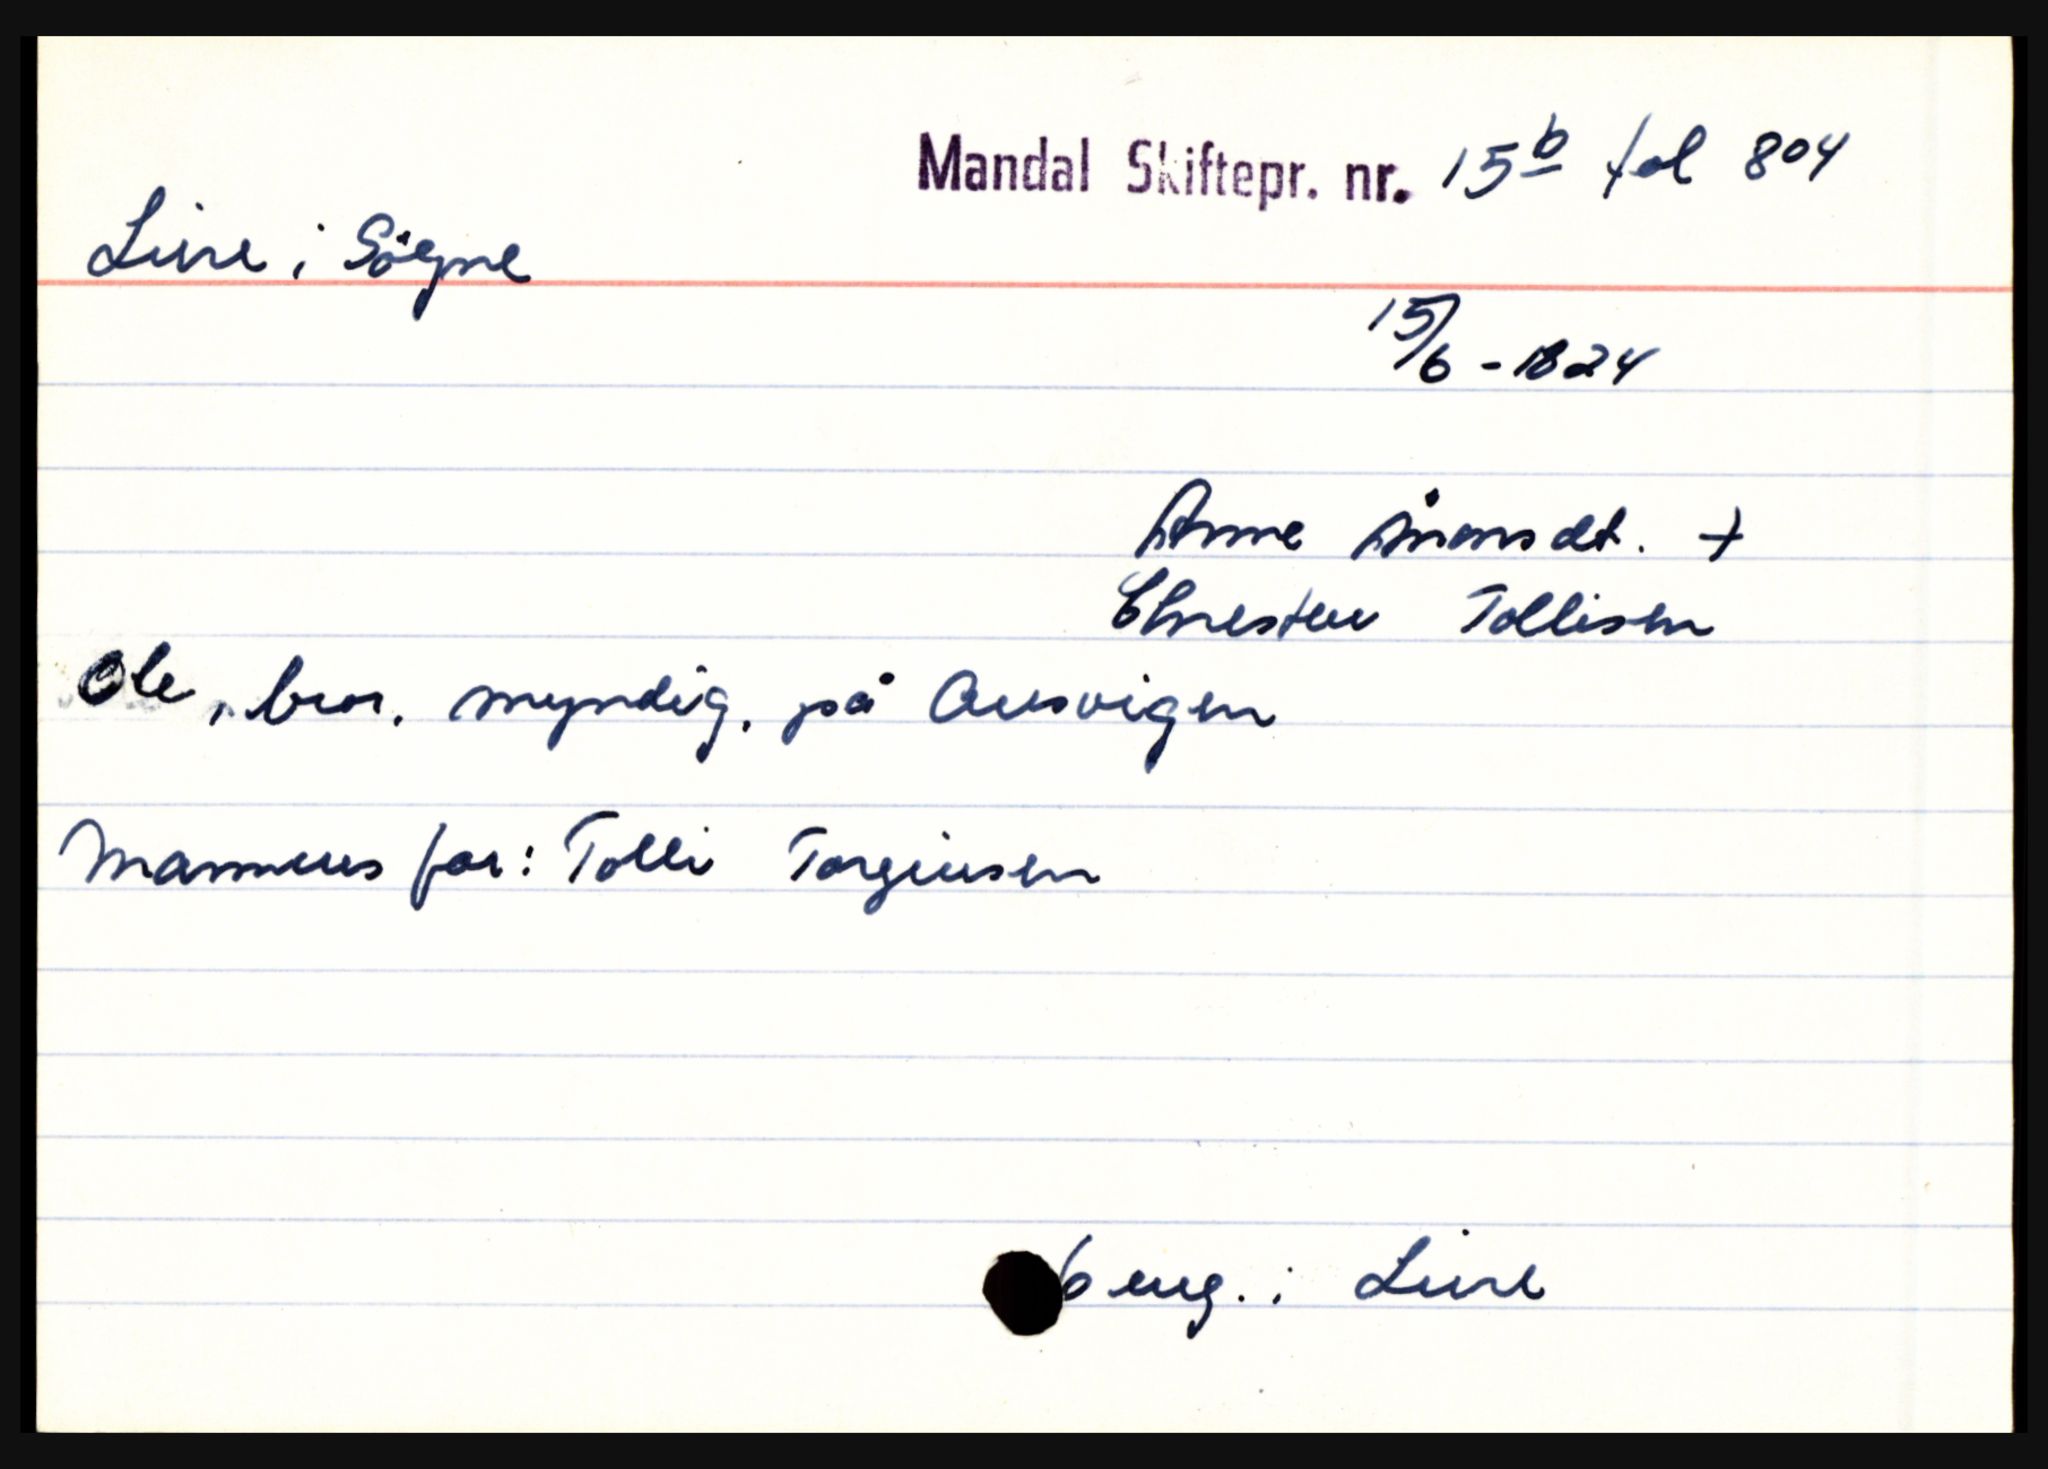 Mandal Skiftepr. nr. 15b fol 804
Line i Søgne
15/6 - 1824
Anne Ånonsdt. +
Chresten Tollisen
Ole, bror. myndig. på Ausvigen
Mannens far: Tolli Torgiusen
eng. i Line